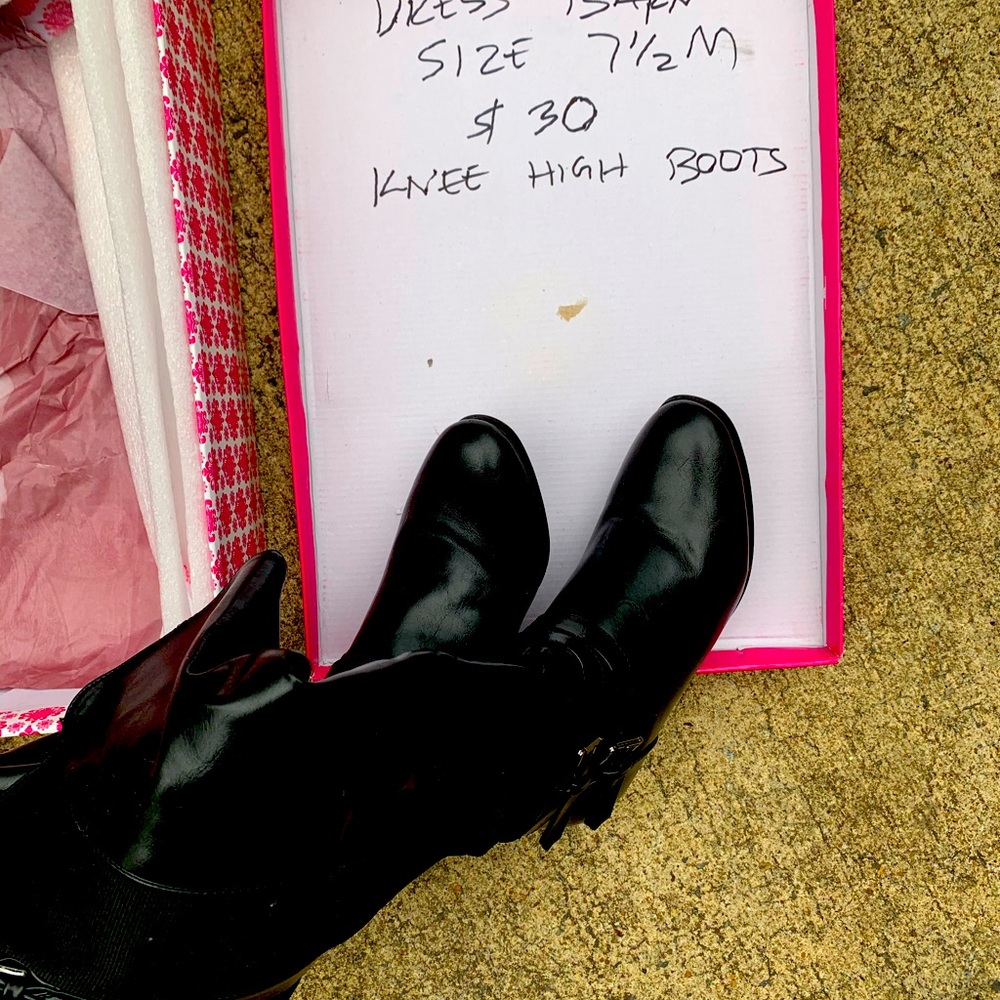 DRESS BARN
SIZE 7 1/2 M
$ 30
KNEE HIGH BOOTS